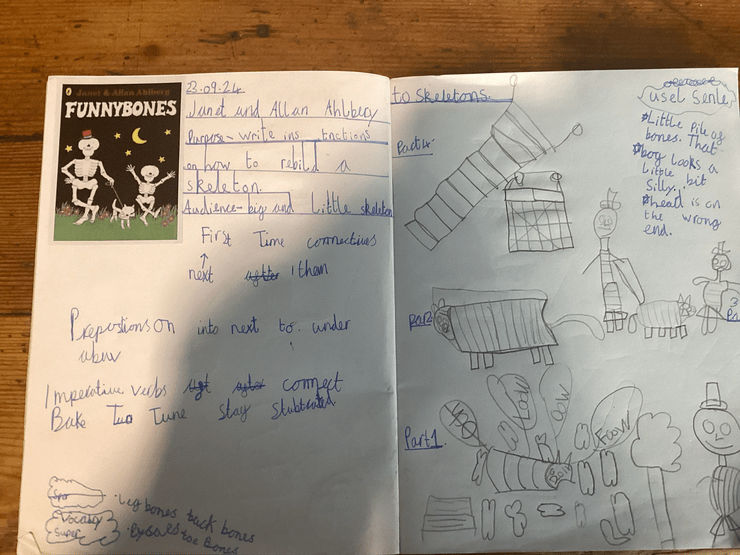 Janet & Allan Ahlberg
FUNNYBONES
23.09.24
Janet and Allan Ahlbery
Purpose - write ins tnactions
on how to rebild a
skeleton.
Audience - big and Little skeleton
First Time connectives
next after then
Prepostions on into next to under
Imperative verbs connect
Bake Tune stay
Vocab
Super
leg bones back bones
toe Bones
to skeletons.
Part 4
usel Sente
Little Pile of
bones. That
bog looks a
Little bit
Silly..
head is on
the wrong
end.
Part 1